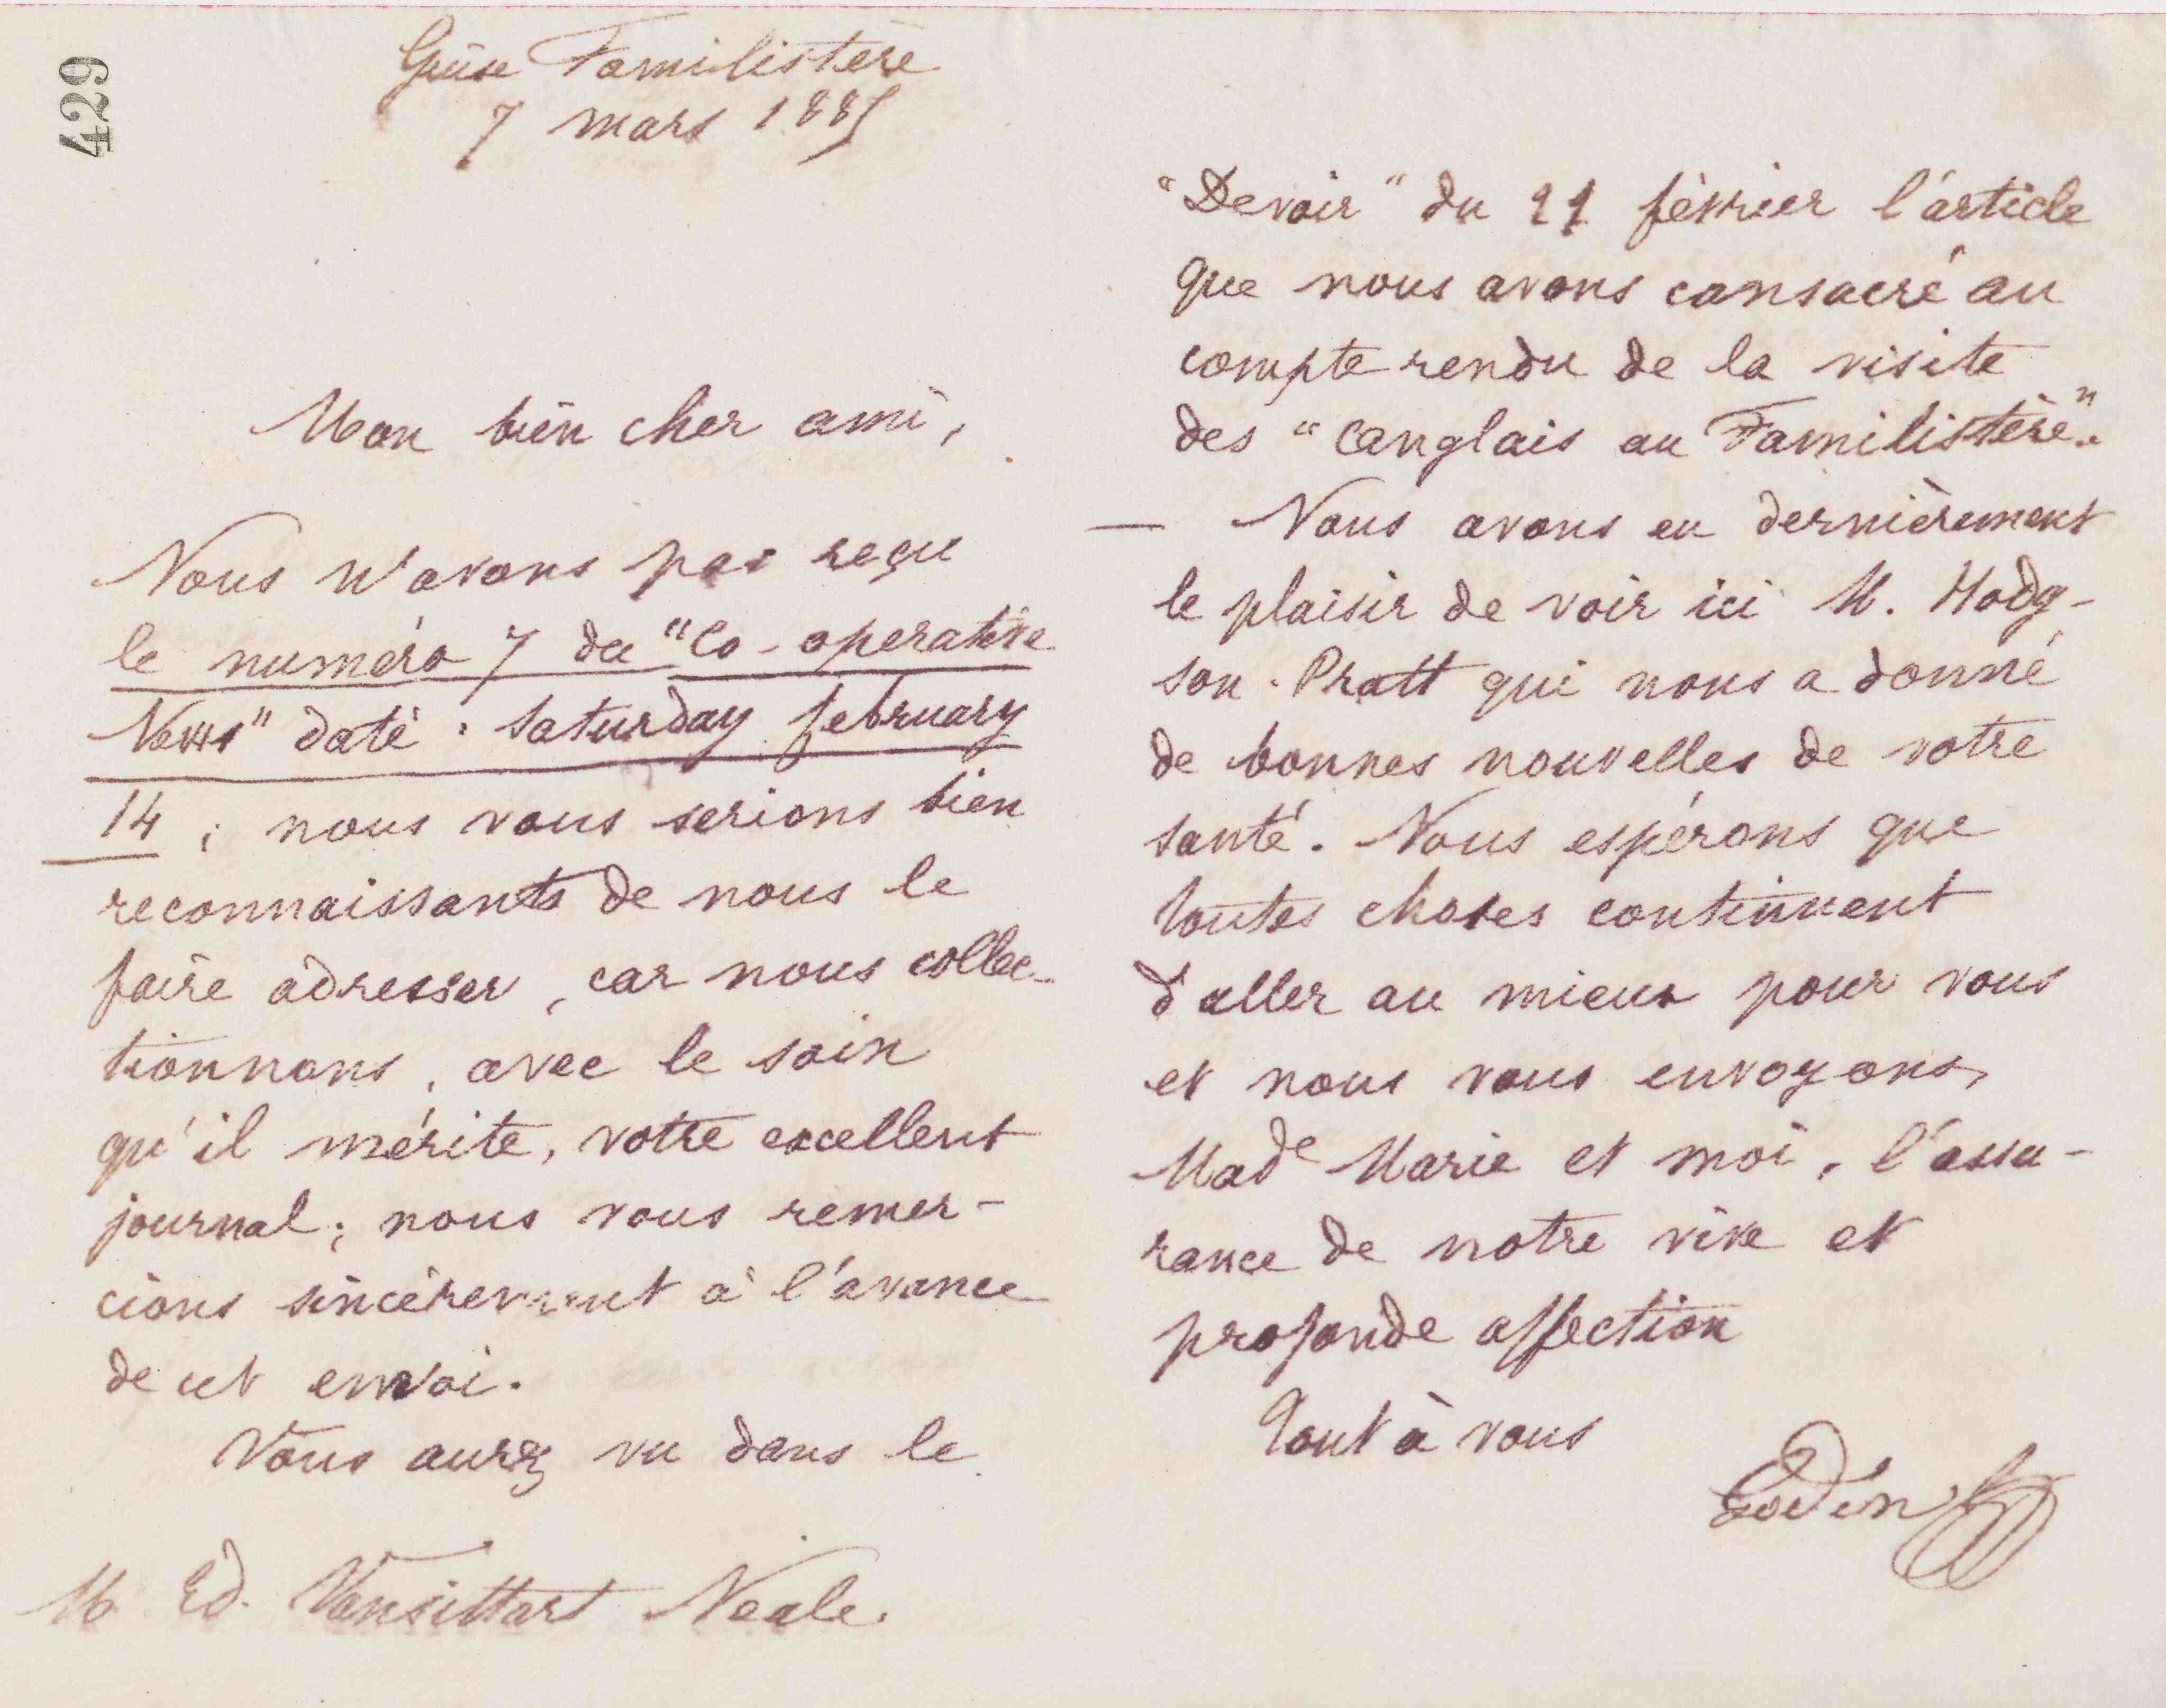 429
Guise Familistère
7 mars 1885
Mon bien cher ami,
Nous n'avons pas reçu
le numéro 7 du "Co-operative
News" daté : Saturday february
14 ; nous vous serions bien
reconnaissants de nous le
faire adresser, car nous collec-
tionnons, avec le soin
qu'il mérite, votre excellent
journal ; nous vous remer-
cions sincèrement à l'avance
de cet envoi.
Vous aurez vu dans le
M Ed. Vansittart Neale.
"Devoir" du 21 février l'article
que nous avons consacré au
compte rendu de la visite
des "Anglais au Familistère".
— Nous avons eu dernièrement
le plaisir de voir ici M. Hodg-
son-Pratt qui nous a donné
de bonnes nouvelles de votre
santé. Nous espérons que
toutes choses continuent
d'aller au mieux pour vous
et nous vous envoyons,
Made Marie et moi, l'assu-
rance de notre vive et
profonde affection
Tout à vous
Godin